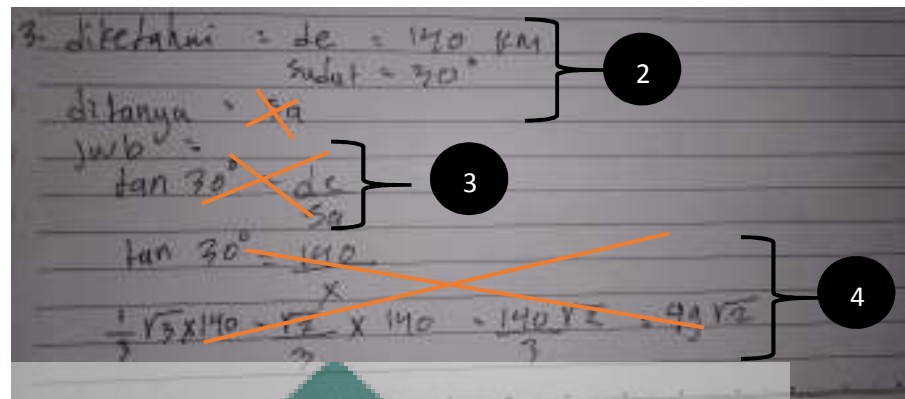 3. diketahui = de = 140 KM
sudut = 30°
2
ditanya = sa
jwb =
tan 30° = de
sa
3
tan 30° = 140
x
4
1/3 √3 x 140 = √2/3 x 140 = 140 √2/3 = 49 √2